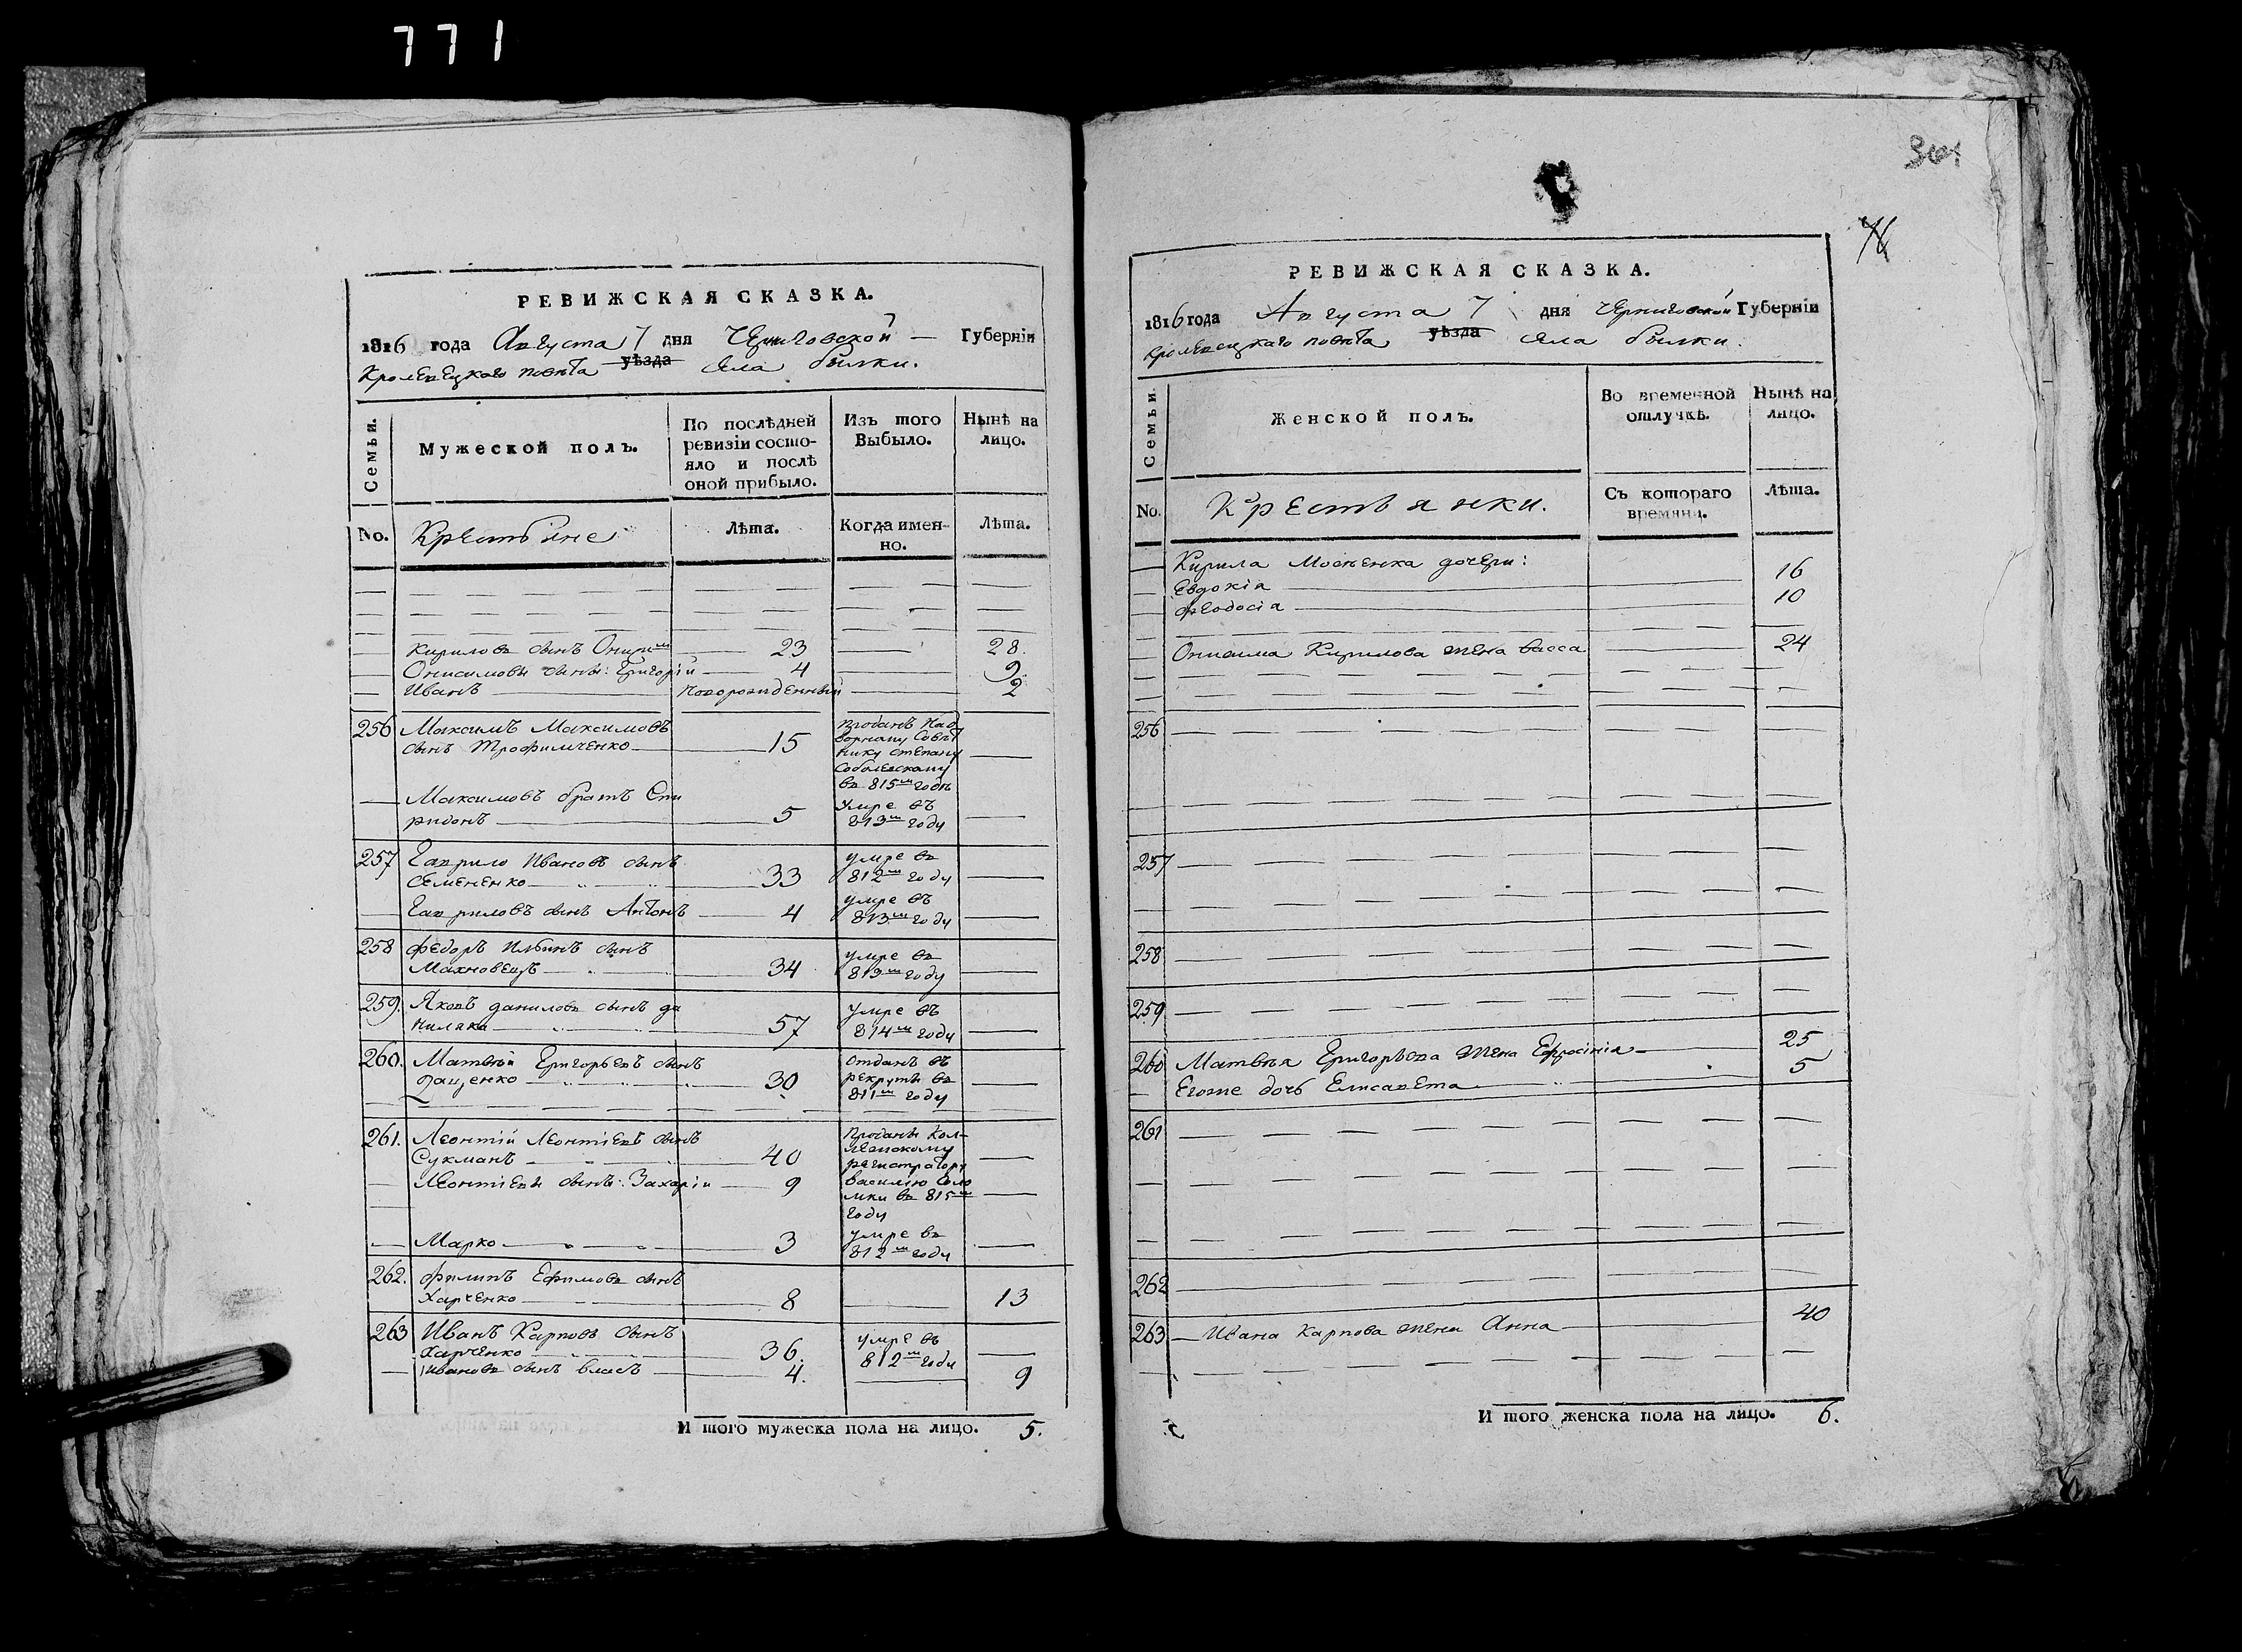 771
РЕВИЖСКАЯ СКАЗКА.
1816 года Августа 7 дня Черниговской Губерніи
Кролевецкаго повѣта уѣзда села Былки.
Семьи.
Мужеской полъ.
По послѣдней
ревизіи состо-
яло и послѣ
оной прибыло.
Изъ того
Выбыло.
Нынѣ на
лицо.
No.
Крестьяне
Лѣта.
Когда имен-
но.
Лѣта.
Кирилов сынъ Онисим 23 28.
Онисимовы сыны: Григорій 4 9
Иванъ новорожденный 2
256 Максимъ Максимовъ
сынъ Трофимченко 15
проданъ над
ворному Совѣт
нику Степану
Соболевскому
въ 815м годѣ
Максимовъ братъ Спи
ридонъ 5
умре въ
813м году
257 Гаврило Ивановъ сынъ
Семененко 33
умре въ
812м году
Гавриловъ сынъ Антонъ 4
умре въ
813м году
258 Федоръ Ильинъ сынъ
Махновецъ 34
умре въ
813м году
259. Яковъ Даниловъ сынъ Да
ниляка 57
умре въ
814м году
260. Матвѣй Григорьевъ сынъ
30
отданъ въ
рекруты въ
811м году
261. Леонтій Леонтіевъ сынъ
Сукманъ 40
Леонтіевы сыны: Захарій 9
Проданы Кол-
лежскому
регистратору
Василію
въ 815м
году
Марко 3
умре въ
812м году
262. Филипъ Ефимовъ сынъ
Харченко 8 13
263 Иванъ Карповъ сынъ
Харченко 36.
умре въ
812м году
Ивановъ сынъ Власъ 4. 9
И того мужеска пола на лицо. 5.
РЕВИЖСКАЯ СКАЗКА.
1816 года Августа 7 дня Черниговской Губерніи
Кролевецкаго повѣта уѣзда села Былки.
Семьи.
Женской полъ.
Во временной
отлучкѣ.
Нынѣ на
лицо.
No.
Крестьянки.
Съ котораго
времяни.
Лѣта.
Кирила дочери:
Евдокія 16
Феодосіа 10
Онисима Кирилова жена Васса 24
256
257
258
259
260 Матвѣя Григорьева жена Ефросинія 25
Егоже дочь Елисавета 5
261
262
263 Ивана Карпова жена Анна 40
И того женска пола на лицо. 6.